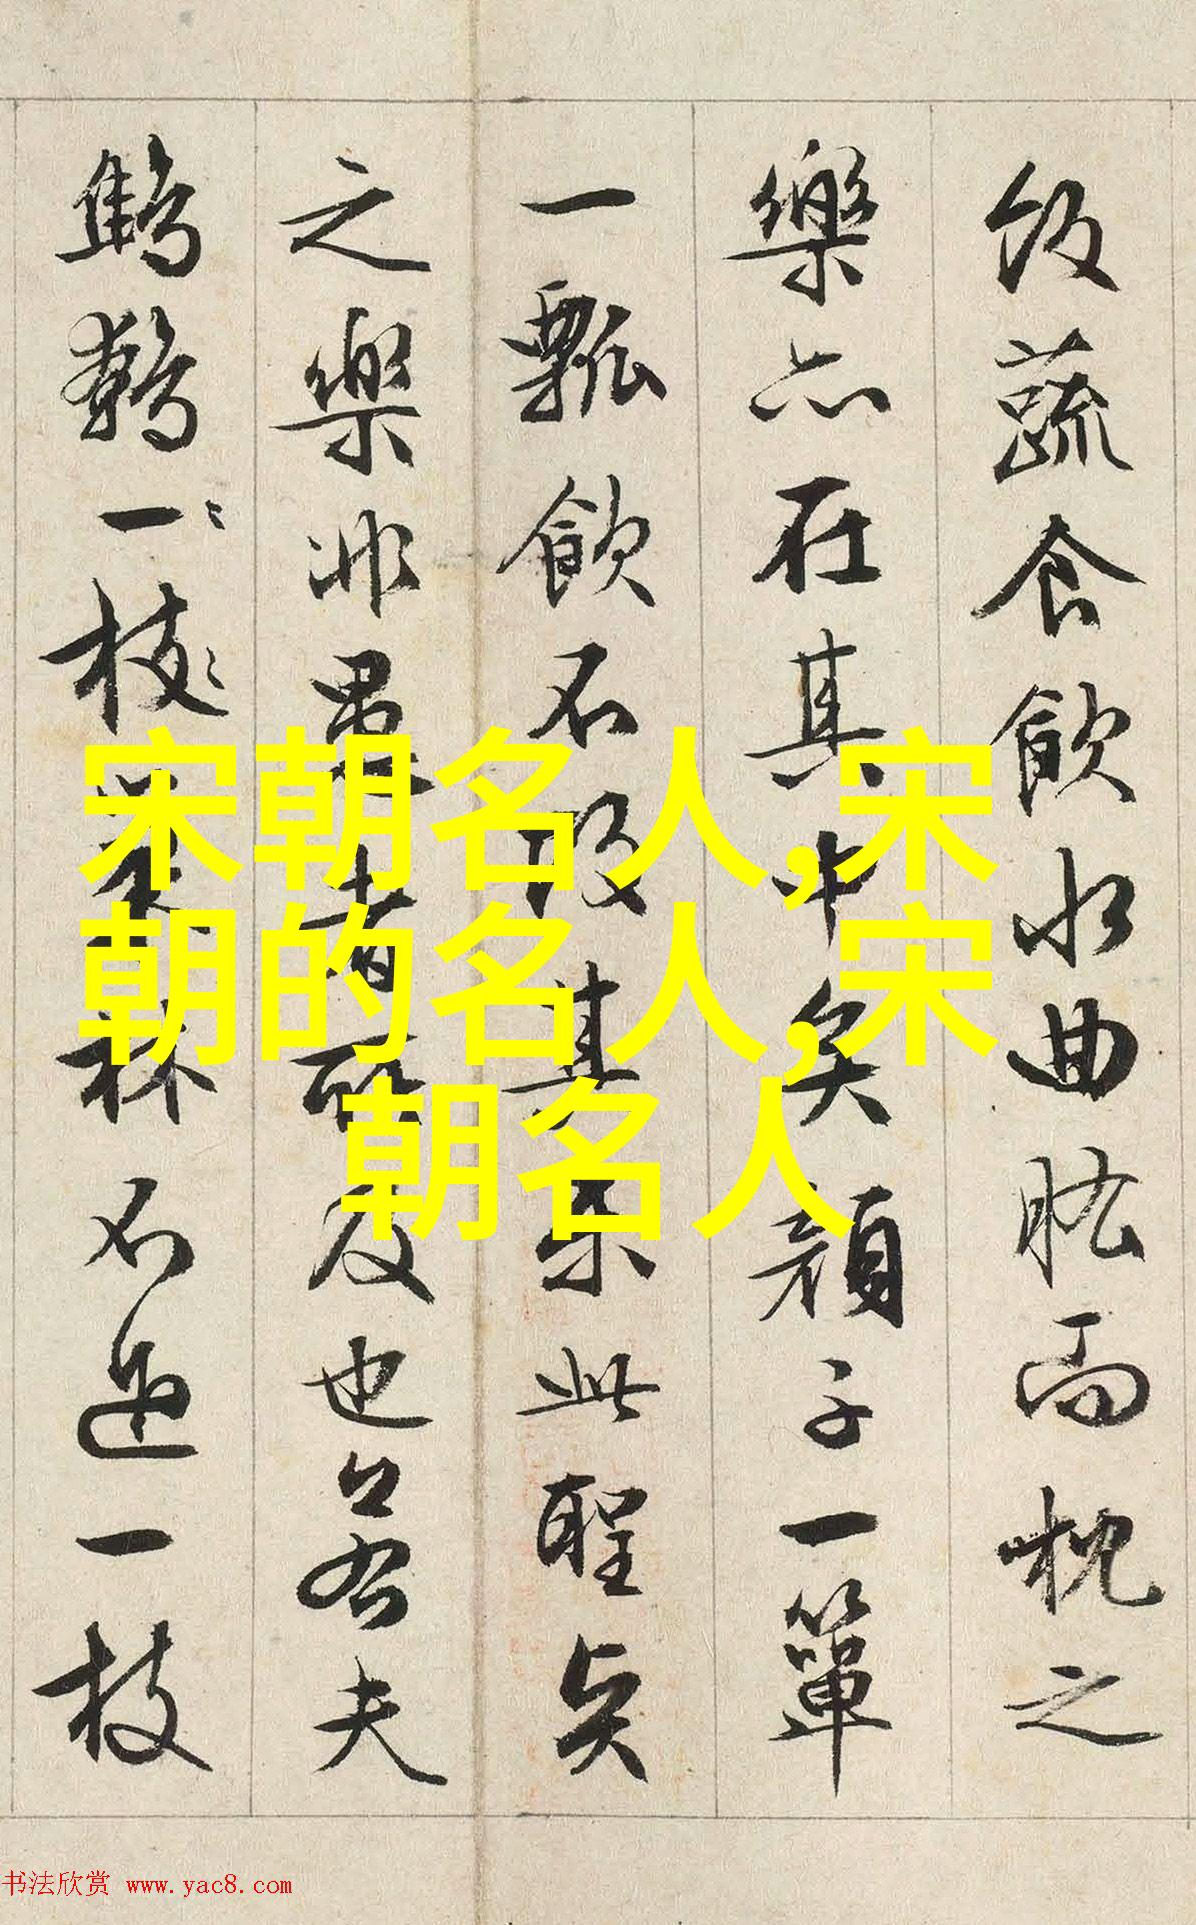 飯蔬食飲水曲肱而枕之
樂亦在其中矣顏子一簞
一瓢飲不改其樂此聖賢
之樂非愚者所及也若夫
鷦鷯一枝巢林不過一枝
宋朝名人,宋
朝的名人,宋
朝名人
书法欣赏 www.yac8.com